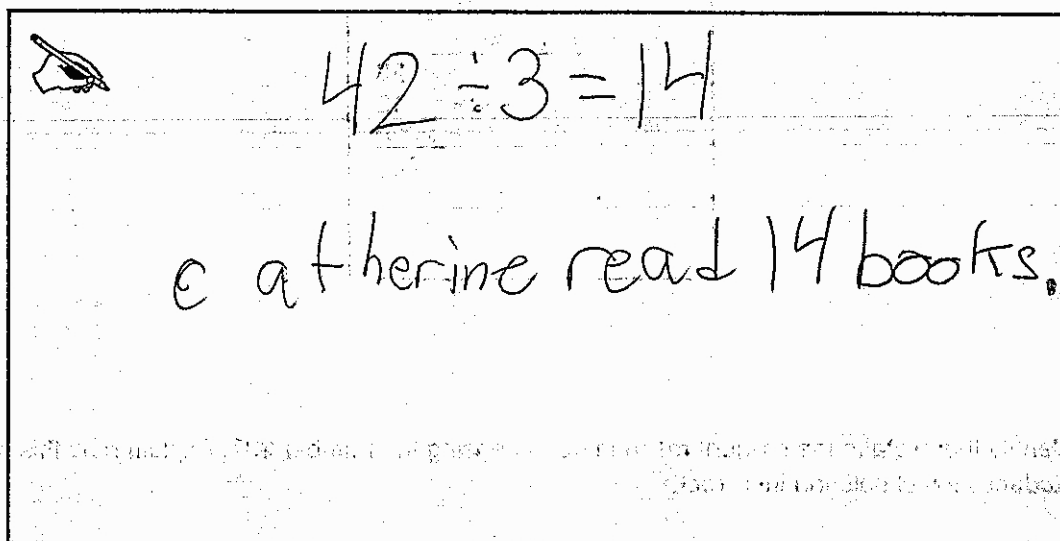 42 ÷ 3 = 14
c atherine read 14 books.